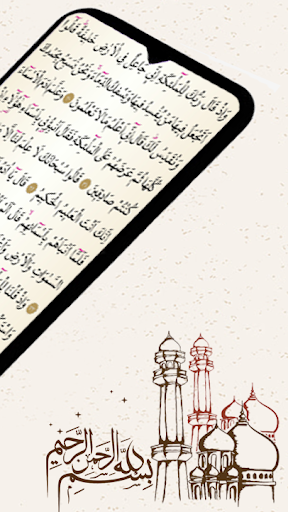 وَإِذْ قَالَ رَبُّكَ لِلْمَلَٰٓئِكَةِ إِنِّى جَاعِلٌ فِى ٱلْأَرْضِ خَلِيفَةً قَالُوٓا۟
أَتَجْعَلُ فِيهَا مَن يُفْسِدُ فِيهَا وَيَسْفِكُ ٱلدِّمَآءَ وَنَحْنُ نُسَبِّحُ بِحَمْدِكَ
وَنُقَدِّسُ لَكَ قَالَ إِنِّىٓ أَعْلَمُ مَا لَا تَعْلَمُونَ ۝ وَعَلَّمَ ءَادَمَ ٱلْأَسْمَآءَ
كُلَّهَا ثُمَّ عَرَضَهُمْ عَلَى ٱلْمَلَٰٓئِكَةِ فَقَالَ أَنۢبِـُٔونِى بِأَسْمَآءِ هَٰٓؤُلَآءِ
كُنتُمْ صَٰدِقِينَ ۝ قَالُوا۟ سُبْحَٰنَكَ لَا عِلْمَ لَنَآ
إِنَّكَ أَنتَ ٱلْعَلِيمُ ٱلْحَكِيمُ ۝ قَالَ
فَلَمَّآ أَنۢبَأَهُم بِأَسْمَآئِهِمْ قَالَ
ٱلسَّمَٰوَٰتِ وَٱلْأَرْضِ
وَإِذْ قُلْنَا
بسم الله الرحمن الرحيم